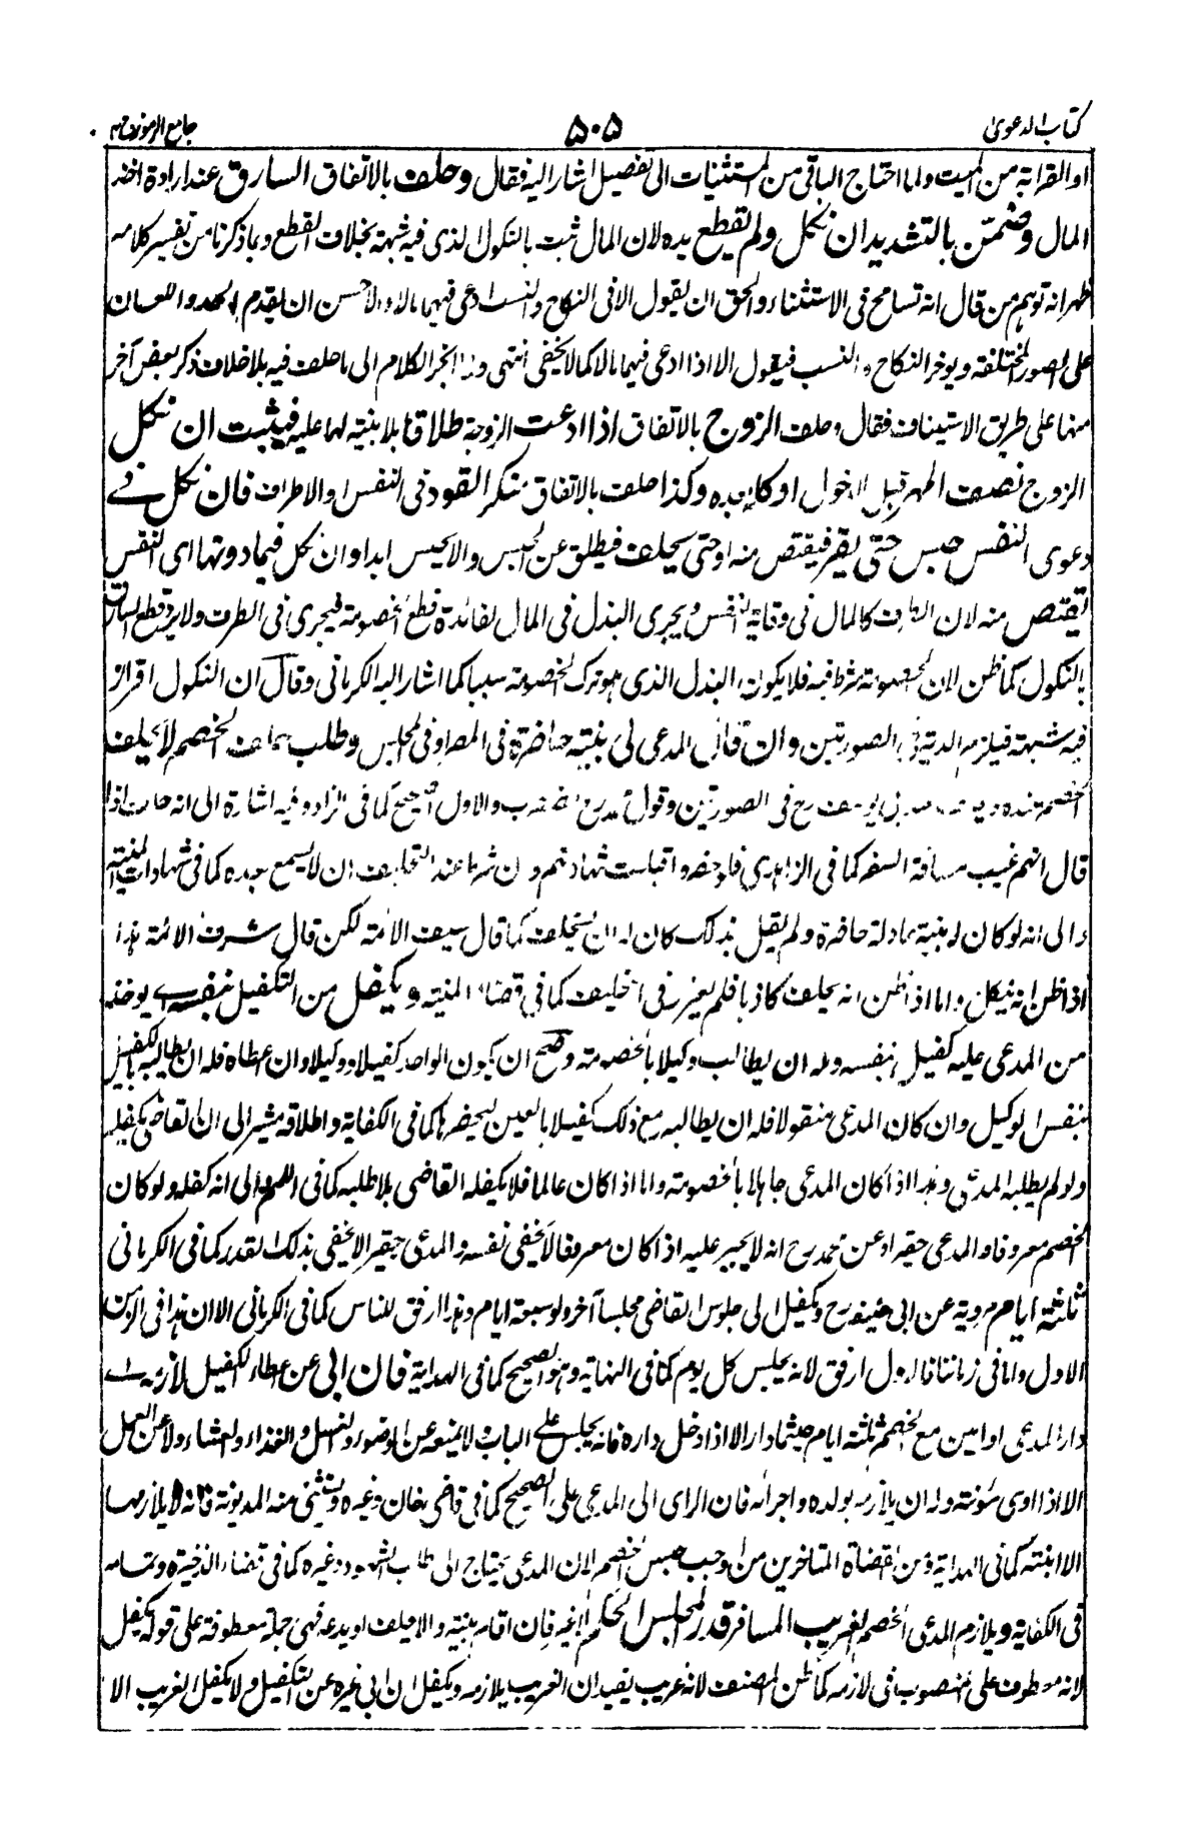 كتاب الدعوى
۵۰۵
جامع الرموز ج۲
او القرابة من الميت واما احتاج الباقى من المستثنيات الى تفصيل اشار اليه فقال وحلف بالاتفاق السارق عند ارادة اخذ
المال وضمن بالتشديد ان نكل ولم يقطع يده لان المال ثبت بالنكول الذى فيه شبهة بخلاف القطع وبما ذكرنا من تفسير كلامه
ظهر انه توهم من قال انه تسامح فى الاستثناء والحق ان يقول الا فى النكاح والنسب ادعى فيهما مالا والاحسن ان يقدم الحد واللعان
على الصور المختلفة ويوخر النكاح والنسب فيقول الا اذا ادعى فيهما مالا كما لا يخفى انتهى ولما انجر الكلام الى ما حلف فيه بلا خلاف ذكر بعض آخر
منها على طريق الاستيناف فقال وحلف الزوج بالاتفاق اذا ادعت الزوجة طلاقا بلا بينة لها عليه فيثبت ان نكل
الزوج نصف المهر قبل الدخول او كله بعده وكذا حلف بالاتفاق منكر القود فى النفس او الاطراف فان نكل فى
دعوى النفس حبس حتى يقر فيقتص منه او حتى يحلف فيطلق عن الحبس والا يحبس ابدا وان نكل فيما دونها اى النفس
يقتص منه لان الطرف كالمال فى وقاية النفس ويجرى البذل فى المال لفائدة قطع الخصومة فيجرى فى الطرف ولا يرد قطع السارق
بالنكول كما ظن لان الخصومة شرط فيه فلا يكون البذل الذى هو ترك الخصومة سببا كما اشار اليه الكرمانى وقالا ان النكول اقرار
فيه شبهة فيلزم الدية فى الصورتين وان قال المدعى لى بينة حاضرة فى المصر او فى المجلس وطلب حلف الخصم لا يحلف
الخصم عنده ابى يوسف رح فى الصورتين وقول محمد رح والاول الصحيح كما فى الزاد وفيه اشارة الى انه حلف اذا
قال انهم غيب مسافة السفر كما فى الزاهدى فلو حضروا قبلت شهادتهم وان شرط عند التحليف ان لا يسمع بعده كما فى شهادات المنية
والى انه لو كان له بينة عادلة حاضرة ولم يقبل بذلك كان له ان يستحلف كما قال سيف الائمة لكن قال شرف الائمة هذا
اذا ظن انه ينكل واما اذا ظن انه يحلف كاذبا فلم يعذر فى التحليف كما فى قضاء المنية ويكفل من التكفيل بنفسه يوخذ
من المدعى عليه كفيل بنفسه وله ان يطالب وكيلا بالخصومة وصح ان يكون الواحد كفيلا ووكيلا وان اعطاه فله ان يطالبه بالكفيل
بنفس الوكيل وان كان المدعى منقولا فله ان يطالبه مع ذلك كفيلا بالعين ليحضرها كما فى الكفاية واطلاقه مشير الى ان القاضى يكفله
ولو لم يطلبه المدعى وهذا اذا كان المدعى جاهلا بالخصومة واما اذا كان عالما فلا يكفله القاضى بلا طلبه كما فى والى انه كفله ولو كان
الخصم معروفا والمدعى حقيرا وعن محمد رح انه لا يجبر عليه اذا كان معروفا لا يخفى نفسه والمدعى حقير لا يخفى بذلك القدر كما فى الكرمانى
ثلثة ايام مروية عن ابى حنيفة رح ويكفل الى جلوس القاضى مجلسا آخر ولو سبعة ايام وهذا ارفق للناس كما فى الكرمانى الا ان هذا فى الزمن
الاول واما فى زماننا فالاول ارفق لانه يجلس كل يوم كما فى النهاية وهو الصحيح كما فى الهداية فان ابى عن عطاء الكفيل لازمه اى
دار المدعى او امين مع الخصم ثلثة ايام حيثما دار الا اذا دخل داره فانه يجلس على الباب ولا يمنعه عن الوضوء والغسل والغذاء والعشاء ولا عن العمل
الا اذا ادى مؤنته وله ان يلازمه بولده واجرائه فان الراى الى المدعى على الصحيح كما فى قاضى خان وغيره ويستثنى منه المديونة فانه لا يلازمها
الا ابنته كما فى الهداية ومن القضاة المتاخرين من اوجب حبس الخصم لان المدعى يحتاج الى طلب الشهود وغيره كما فى قضاء الذخيرة وتمامه
فى الكفاية ويلازم المدعى الخصم الغريب المسافر قدر مجلس الحكم لا غير فان اقام بينة والا يحلف او يدعه فهى جملة معطوفة على قوله يكفل
لانه معطوف على المنصوب فى لازمه كما ظن المصنف لانه غريب يفيد ان الغريب يلازمه ويكفل ان ابى غيره عن التكفيل ولا يكفل الغريب الا